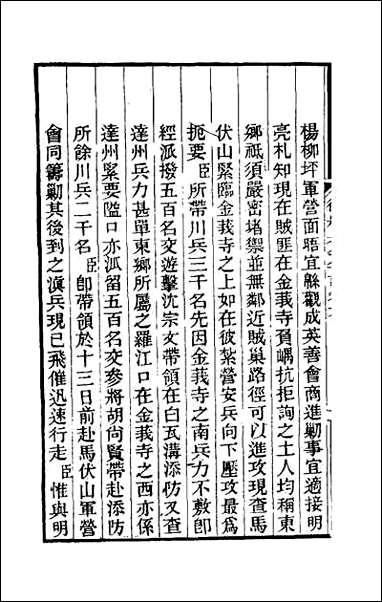 楊柳坪軍營面晤宜縣觀成英善會商進勦事宜適接明
亮札知現在賊匪在金莪寺負嵎抗拒詢之土人均稱東
鄉祇須嚴密堵禦並無鄰近賊巢路徑可以進攻現查馬
伏山緊臨金莪寺之上如在彼紮營安兵向下壓攻最爲
扼要臣所帶川兵三千名先因金莪寺之南兵力不敷卽
經派撥五百名交遊擊沈宗文帶領在白瓦溝添防又查
達州兵力甚單東鄉所屬之羅江口在金莪寺之西亦係
達州緊要隘口亦派留五百名交參將胡尙賢帶赴添防
所餘川兵二千名臣卽帶領於十三日前赴馬伏山軍營
會同籌勦其後到之滇兵現已飛催迅速行走臣惟與明